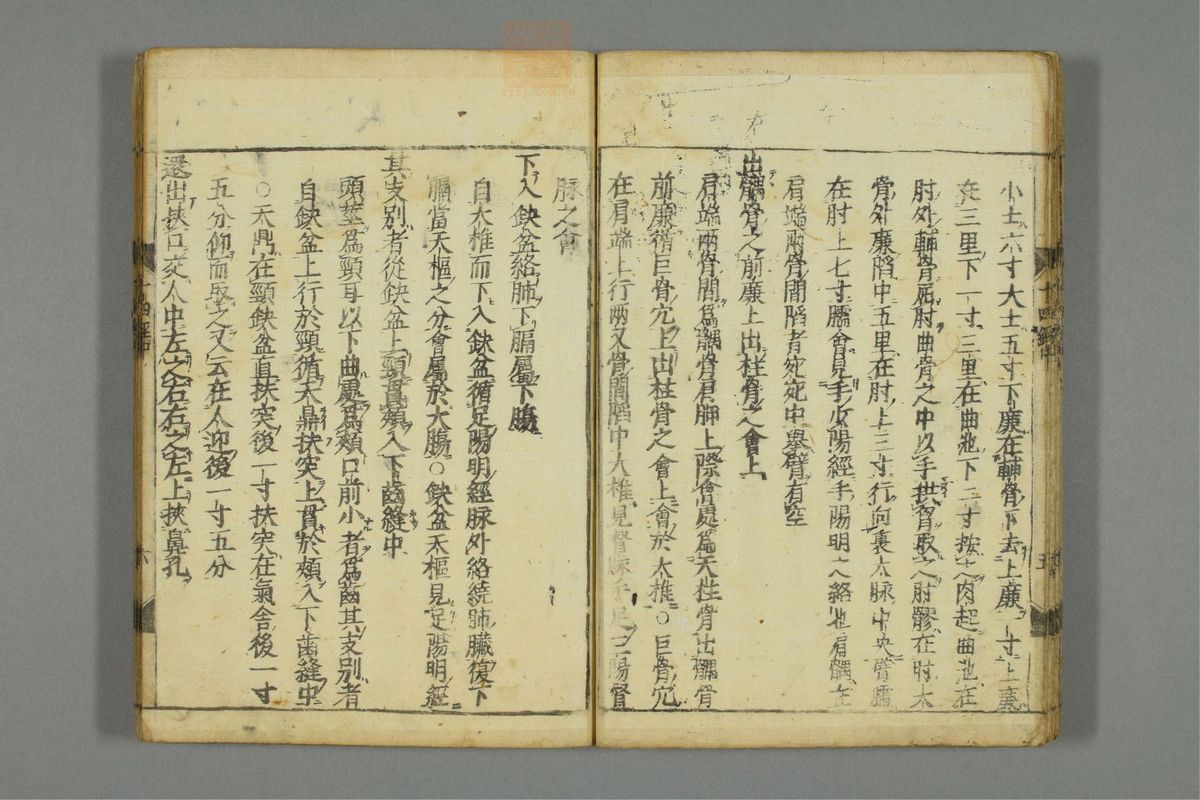 小士六寸大士五寸下廉在輔骨下去上廉一寸上廉
在三里下一寸三里在曲池下二寸按之肉起曲池在
肘外輔骨屈肘曲骨之中以手拱胷取之肘髎在肘大
骨外廉陷中五里在肘上三寸行向裏大脉中央臂臑
在肘上七寸臑會見手少陽經手陽明之絡也肩髃在
肩端兩骨間陷者宛宛中舉臂有空
出髃骨之前廉上出柱骨之會上
肩端兩骨間爲髃骨肩胛上際會處爲天柱骨出髃骨
前廉循巨骨穴上出柱骨之會上會於大椎○巨骨穴
在肩端上行兩叉骨間陷中大椎見督脉手足三陽督
脉之會
下入缺盆絡肺下膈屬下膓
自大椎而下入缺盆循足陽明經脉外絡繞肺臟復下
膈當天樞之分會屬於大膓○缺盆天樞見足陽明經
其支別者從缺盆上頸貫頰入下齒縫中
頭莖爲頸耳以下曲處爲頰口前小者爲齒其支別者
自缺盆上行於頸循天鼎扶突上貫於頰入下齒縫中
○天鼎在頸缺盆直扶突後一寸扶突在氣舍後一寸
五分仰而取之又云在人迎後一寸五分
還出挾口交人中左之右右之左上挾鼻孔
十四經
五
六